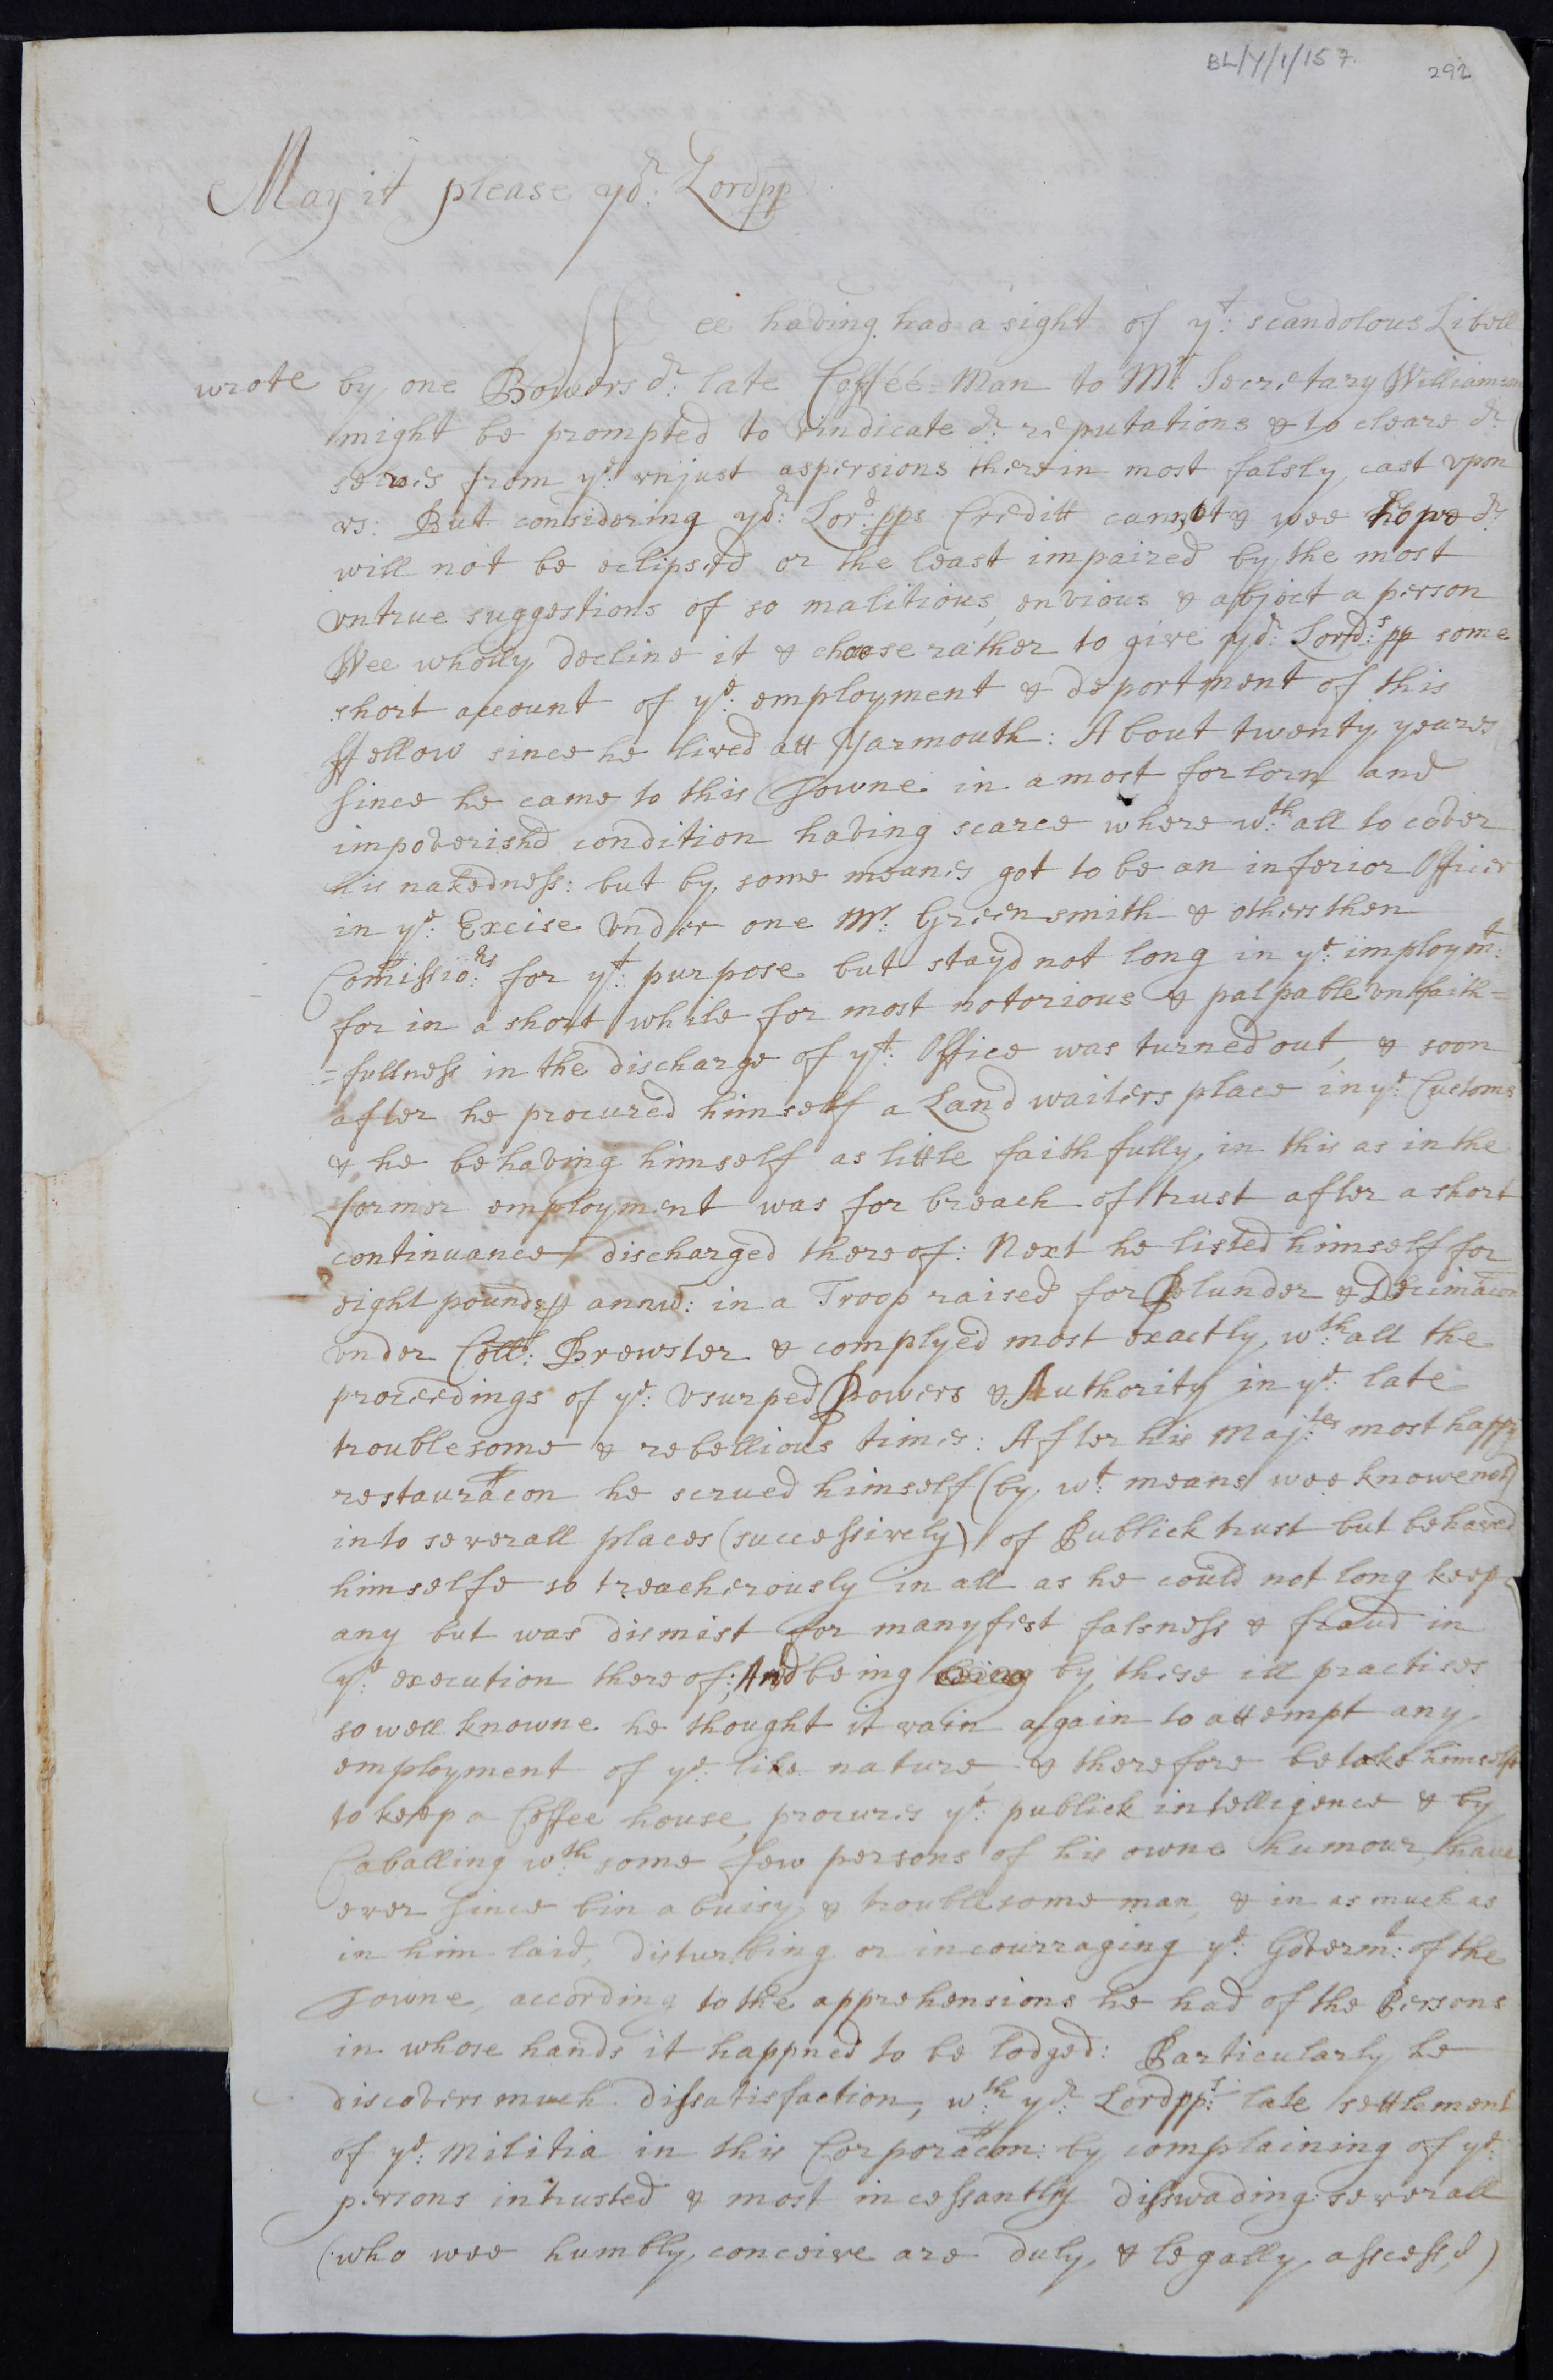 BL/Y/1/157.
292
May it please yor: Lordpp
Wee having had a sight of yt: scandolous Libell
wrote by one Bowers or: late Coffée=Man to Mr: Secretary Williamson
might be prompted to vindicate or: reputations & to cleare or:
selves from ye: vnjust aspersions therein most falsly cast vpon
vs: But considering yor: Lordpps Creditt cannot & wee hope or:
will not be eclipsed or the least impaired by the most
vntrue suggestions of so malitious, envious & abject a person
Wee wholly decline it & choose rather to give yor: Lords:pp some
short account of ye: employment & deportment of this
ffellow since he lived att Yarmouth: About twenty yeares
since he came to this Towne in a most forlorn and
impoverishd condition having scarce where wth:all to cover
his nakedness: but by some meanes got to be an inferior Officer
in ye: Excise vnder one Mr: Greensmith & others then
Comissio:rs for yt: purpose but stayd not long in ye: imploymt:
for in a short while for most notorious & palpable vnfaith=
=fullness in the discharge of yt: Office was turned out, & soon
after he procured himself a Land waiters place in ye: Customs
& he behaving himself as little faithfully in this as in the
former employment was for breach of trust after a short
continuance discharged thereof: Next he listed himself for
eight pounds p annu: in a Troop raised for Plunder & Decimacon
vnder Coll: Brewster & complyed most exactly wth:all the
proceedings of ye: vsurped Powers & Authority in ye: late
troublesome & rebellious times: After his Maj:tes most happy
restauracon he scrued himself (by wt: means wee knowe not)
into severall places (successively) of Publick trust but behaved
himselfe so treacherously in all as he could not long keep
any but was dismist for manyfest falsness & fraud in
ye: execution thereof; And being by these ill practices
so well knowne he thought it vain again to attempt any
employment of ye: like nature, & therefore betake himself
to keep a Coffee house, procures ye: publick intelligence & by
Caballing wth: some few persons of his owne humour, have
ever since bin a buisy & troublesome man, & in as much as
in him laid, disturbing or incourraging ye: Goverm:t of the
Towne, according to the apprehensions he had of the Persons
in whose hands it happned to be lodged: Particularly he
discovers much dissatisfaction, wth: yor: Lordpps: late settlement
of ye: Militia in this Corporacon: by complaining of ye:
persons intrusted & most incessantly disswading severall
(who wee humbly conceive are duly & legally assess,d)